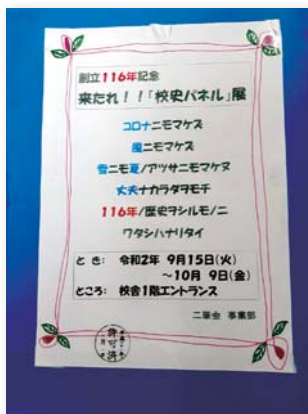 創立116年記念
来たれ！！「校史パネル」展
コロナニモマケズ
風ニモマケズ
雪ニモ夏ノアツサニモマケヌ
丈夫ナカラダヲモチ
116年ノ歴史ヲシルモノニ
ワタシハナリタイ
とき： 令和2年 9月15日(火)
～10月 9日(金)
ところ： 校舎1階エントランス
二華会 事業部
許可済